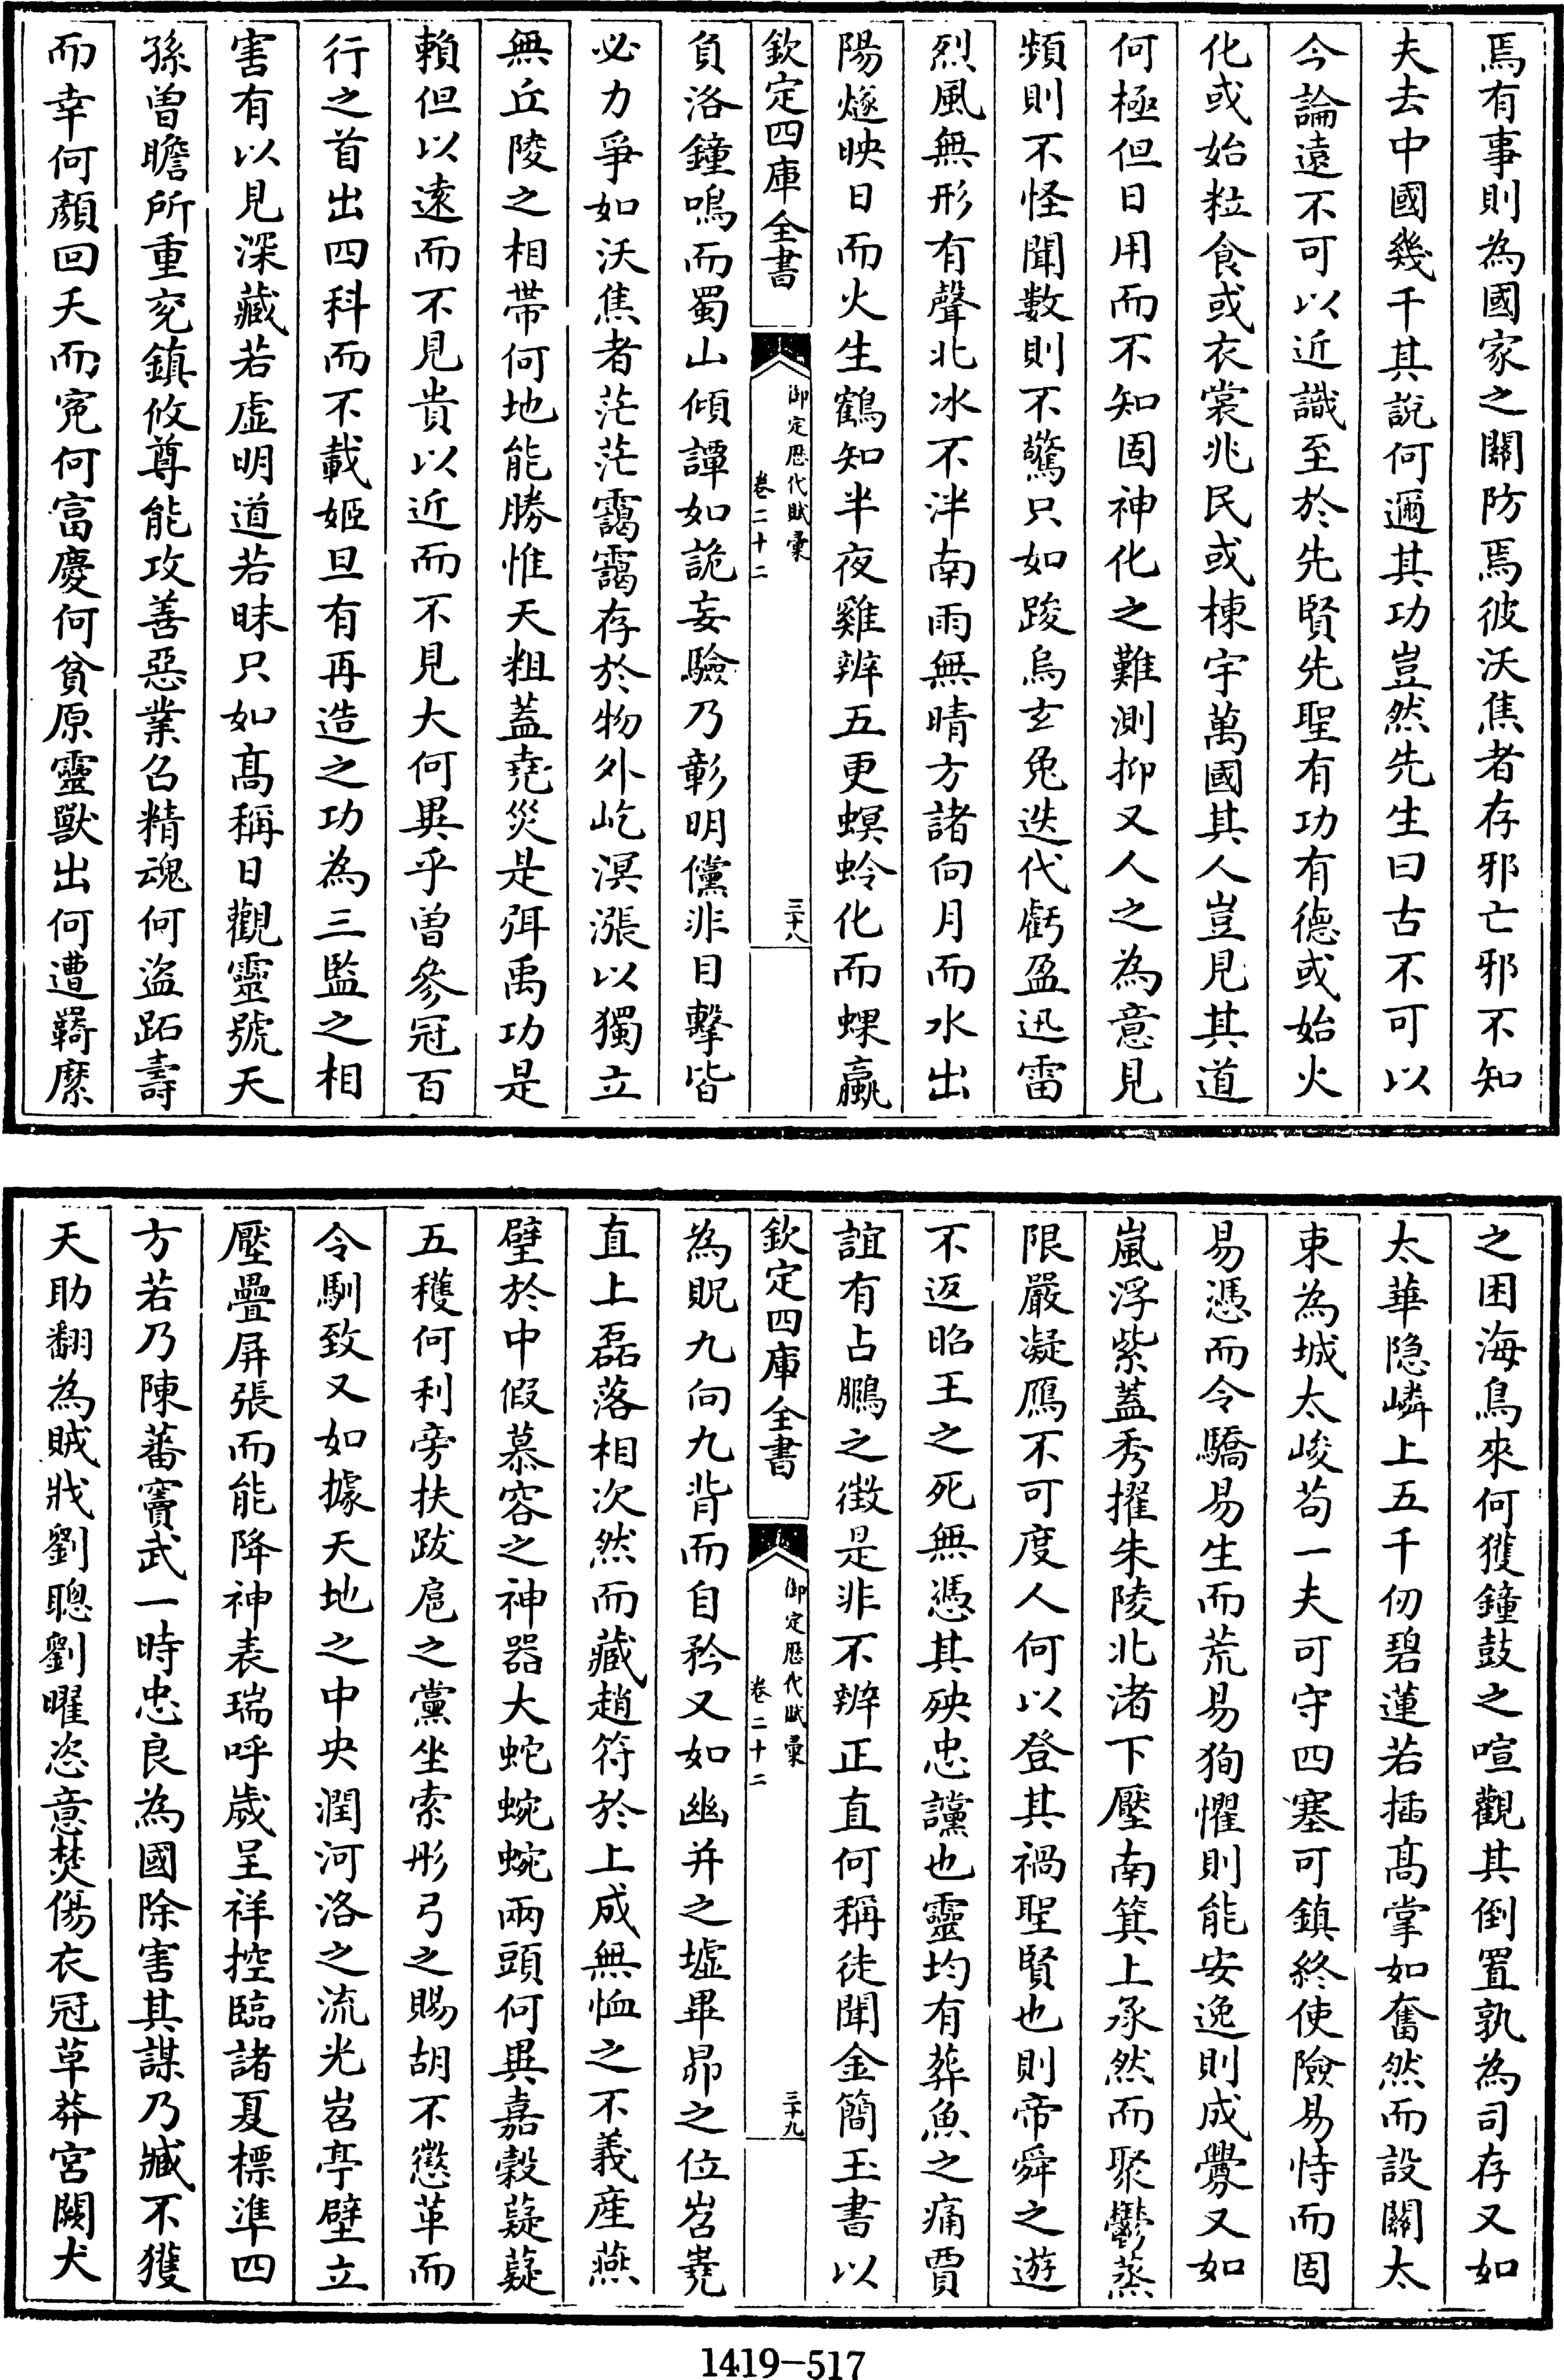 焉有事則為國家之關防焉彼沃焦者存邪亡邪不知
夫去中國幾千其說何邇其功豈然先生曰古不可以
今論遠不可以近識至於先賢先聖有功有德或始火
化或始粒食或衣裳兆民或棟宇萬國其人豈見其道
何極但日用而不知固神化之難測抑又人之為意見
頻則不怪聞數則不驚只如踆烏玄兔迭代虧盈迅雷
烈風無形有聲北冰不泮南雨無晴方諸向月而水出
陽燧映日而火生鶴知半夜雞辨五更螟蛉化而蜾蠃
欽定四庫全書
御定歷代賦彙
卷二十二
三十八
負洛鐘鳴而蜀山傾譚如詭妄驗乃彰明儻非目擊皆
必力爭如沃焦者茫茫靄靄存於物外屹溟漲以獨立
無丘陵之相帶何地能勝惟天粗蓋堯災是弭禹功是
賴但以遠而不見貴以近而不見大何異乎曾參冠百
行之首出四科而不載姬旦有再造之功為三監之相
害有以見深藏若虛明道若昧只如高稱日觀靈號天
孫曾瞻所重兗鎮攸尊能攻善惡業召精魂何盜跖壽
而幸何顏回夭而冤何富慶何貧原靈獸出何遭羇縻
之困海鳥來何獲鐘鼓之喧觀其倒置孰為司存又如
太華隱嶙上五千仞碧蓮若插高掌如奮然而設關太
東為城太峻苟一夫可守四塞可鎮終使險易恃而固
易憑而令驕易生而荒易狥懼則能安逸則成釁又如
嵐浮紫蓋秀擢朱陵北渚下壓南箕上承然而聚鬱蒸
限嚴凝鴈不可度人何以登其禍聖賢也則帝舜之遊
不返昭王之死無憑其殃忠讜也靈均有葬魚之痛賈
誼有占鵬之徵是非不辨正直何稱徒聞金簡玉書以
欽定四庫全書
御定歷代賦彙
卷二十二
三十九
為貺九向九背而自矜又如幽并之墟畢昴之位岧嶤
直上磊落相次然而藏趙符於上成無恤之不義產燕
壁於中假慕容之神器大蛇蜿蜿兩頭何異嘉穀薿薿
五穫何利旁扶跋扈之黨坐索彤弓之賜胡不懲革而
令馴致又如據天地之中央潤河洛之流光岧亭壁立
壓疊屏張而能降神表瑞呼歲呈祥控臨諸夏標準四
方若乃陳蕃竇武一時忠良為國除害其謀乃臧不獲
天助翻為賊戕劉聰劉曜恣意焚傷衣冠草莽宮闕犬
1419-517